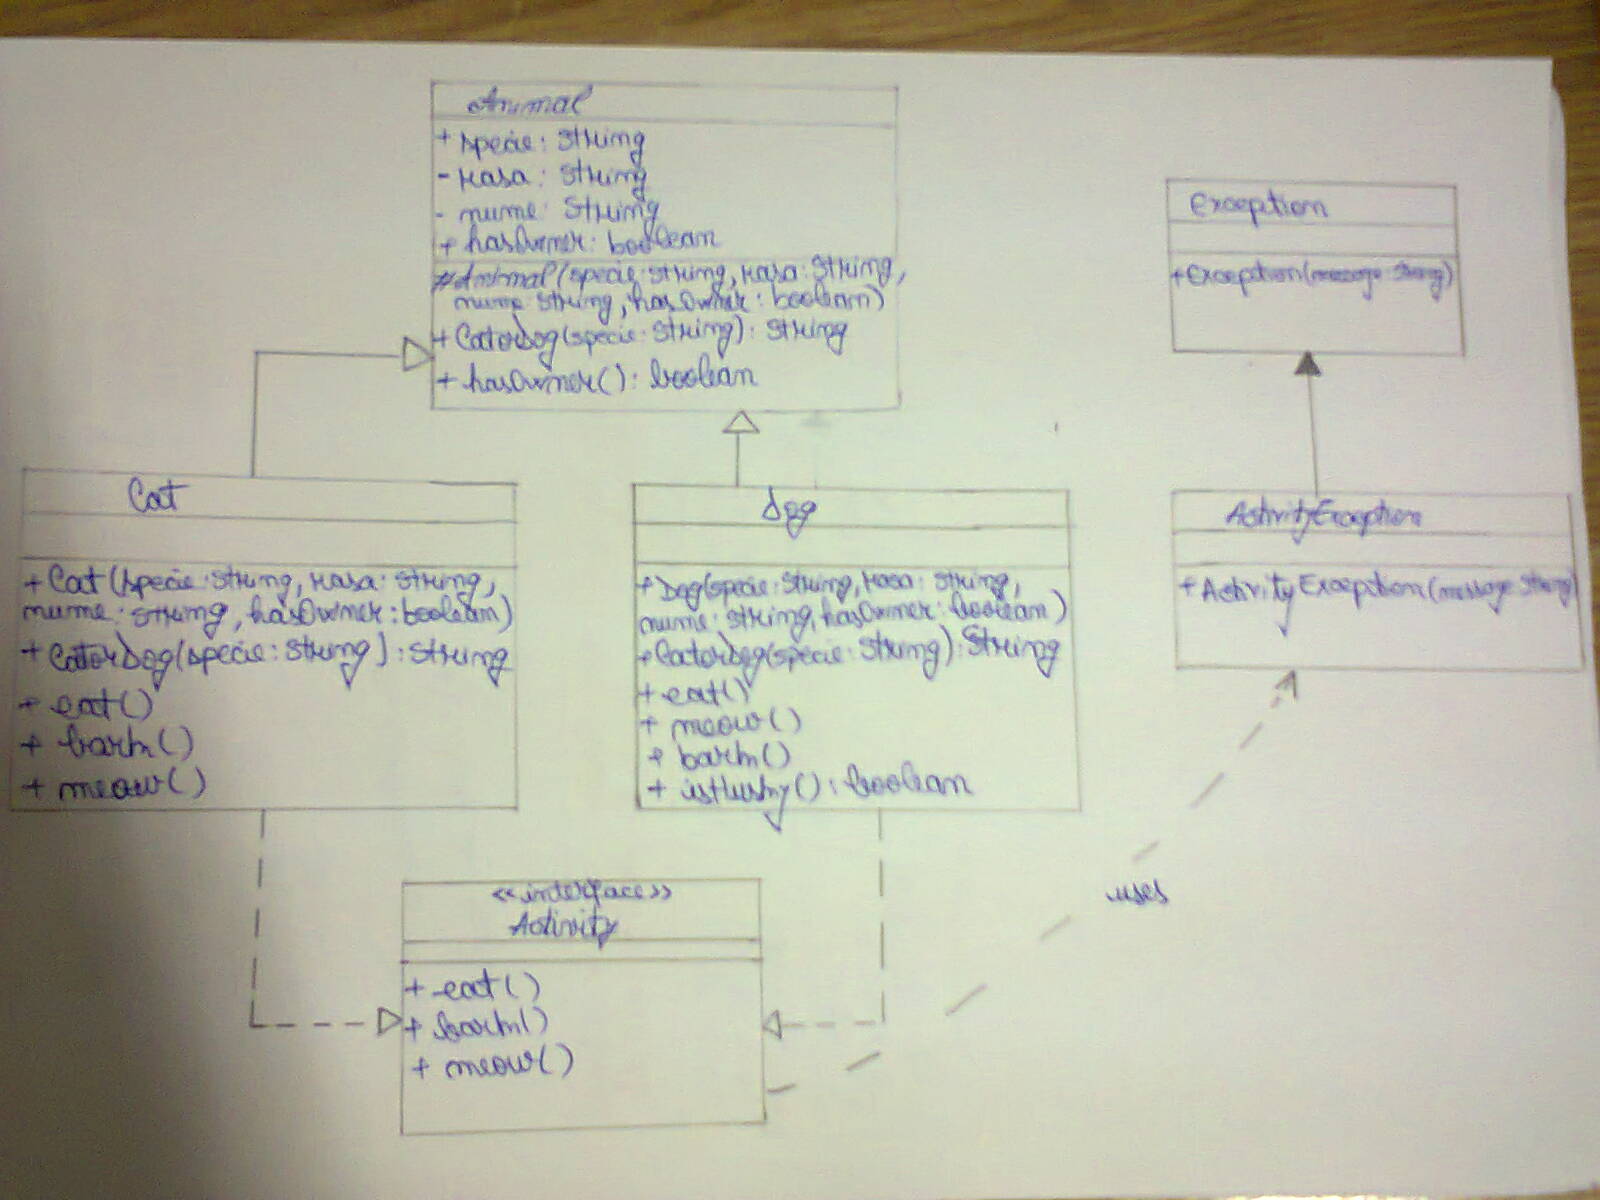 Animal
+ specie: String
- rasa: String
- nume: String
+ hasOwner: boolean
#Animal(specie:String, rasa:String,
nume:String, hasOwner: boolean)
+ CatorDog(specie:String): String
+ hasOwner(): boolean
Exception
+Exception(message:String)
Cat
+ Cat(specie:String, rasa:String,
nume:String, hasOwner:boolean)
+ CatorDog(specie:String): String
+ eat()
+ bark()
+ meow()
Dog
+ Dog(specie:String, rasa:String,
nume:String, hasOwner:boolean)
+CatorDog(specie:String):String
+ eat()
+ meow()
+ bark()
+ isHusky(): boolean
ActivityException
+ActivityException(message:String)
<<interface>>
Activity
+ eat()
+ bark()
+ meow()
uses